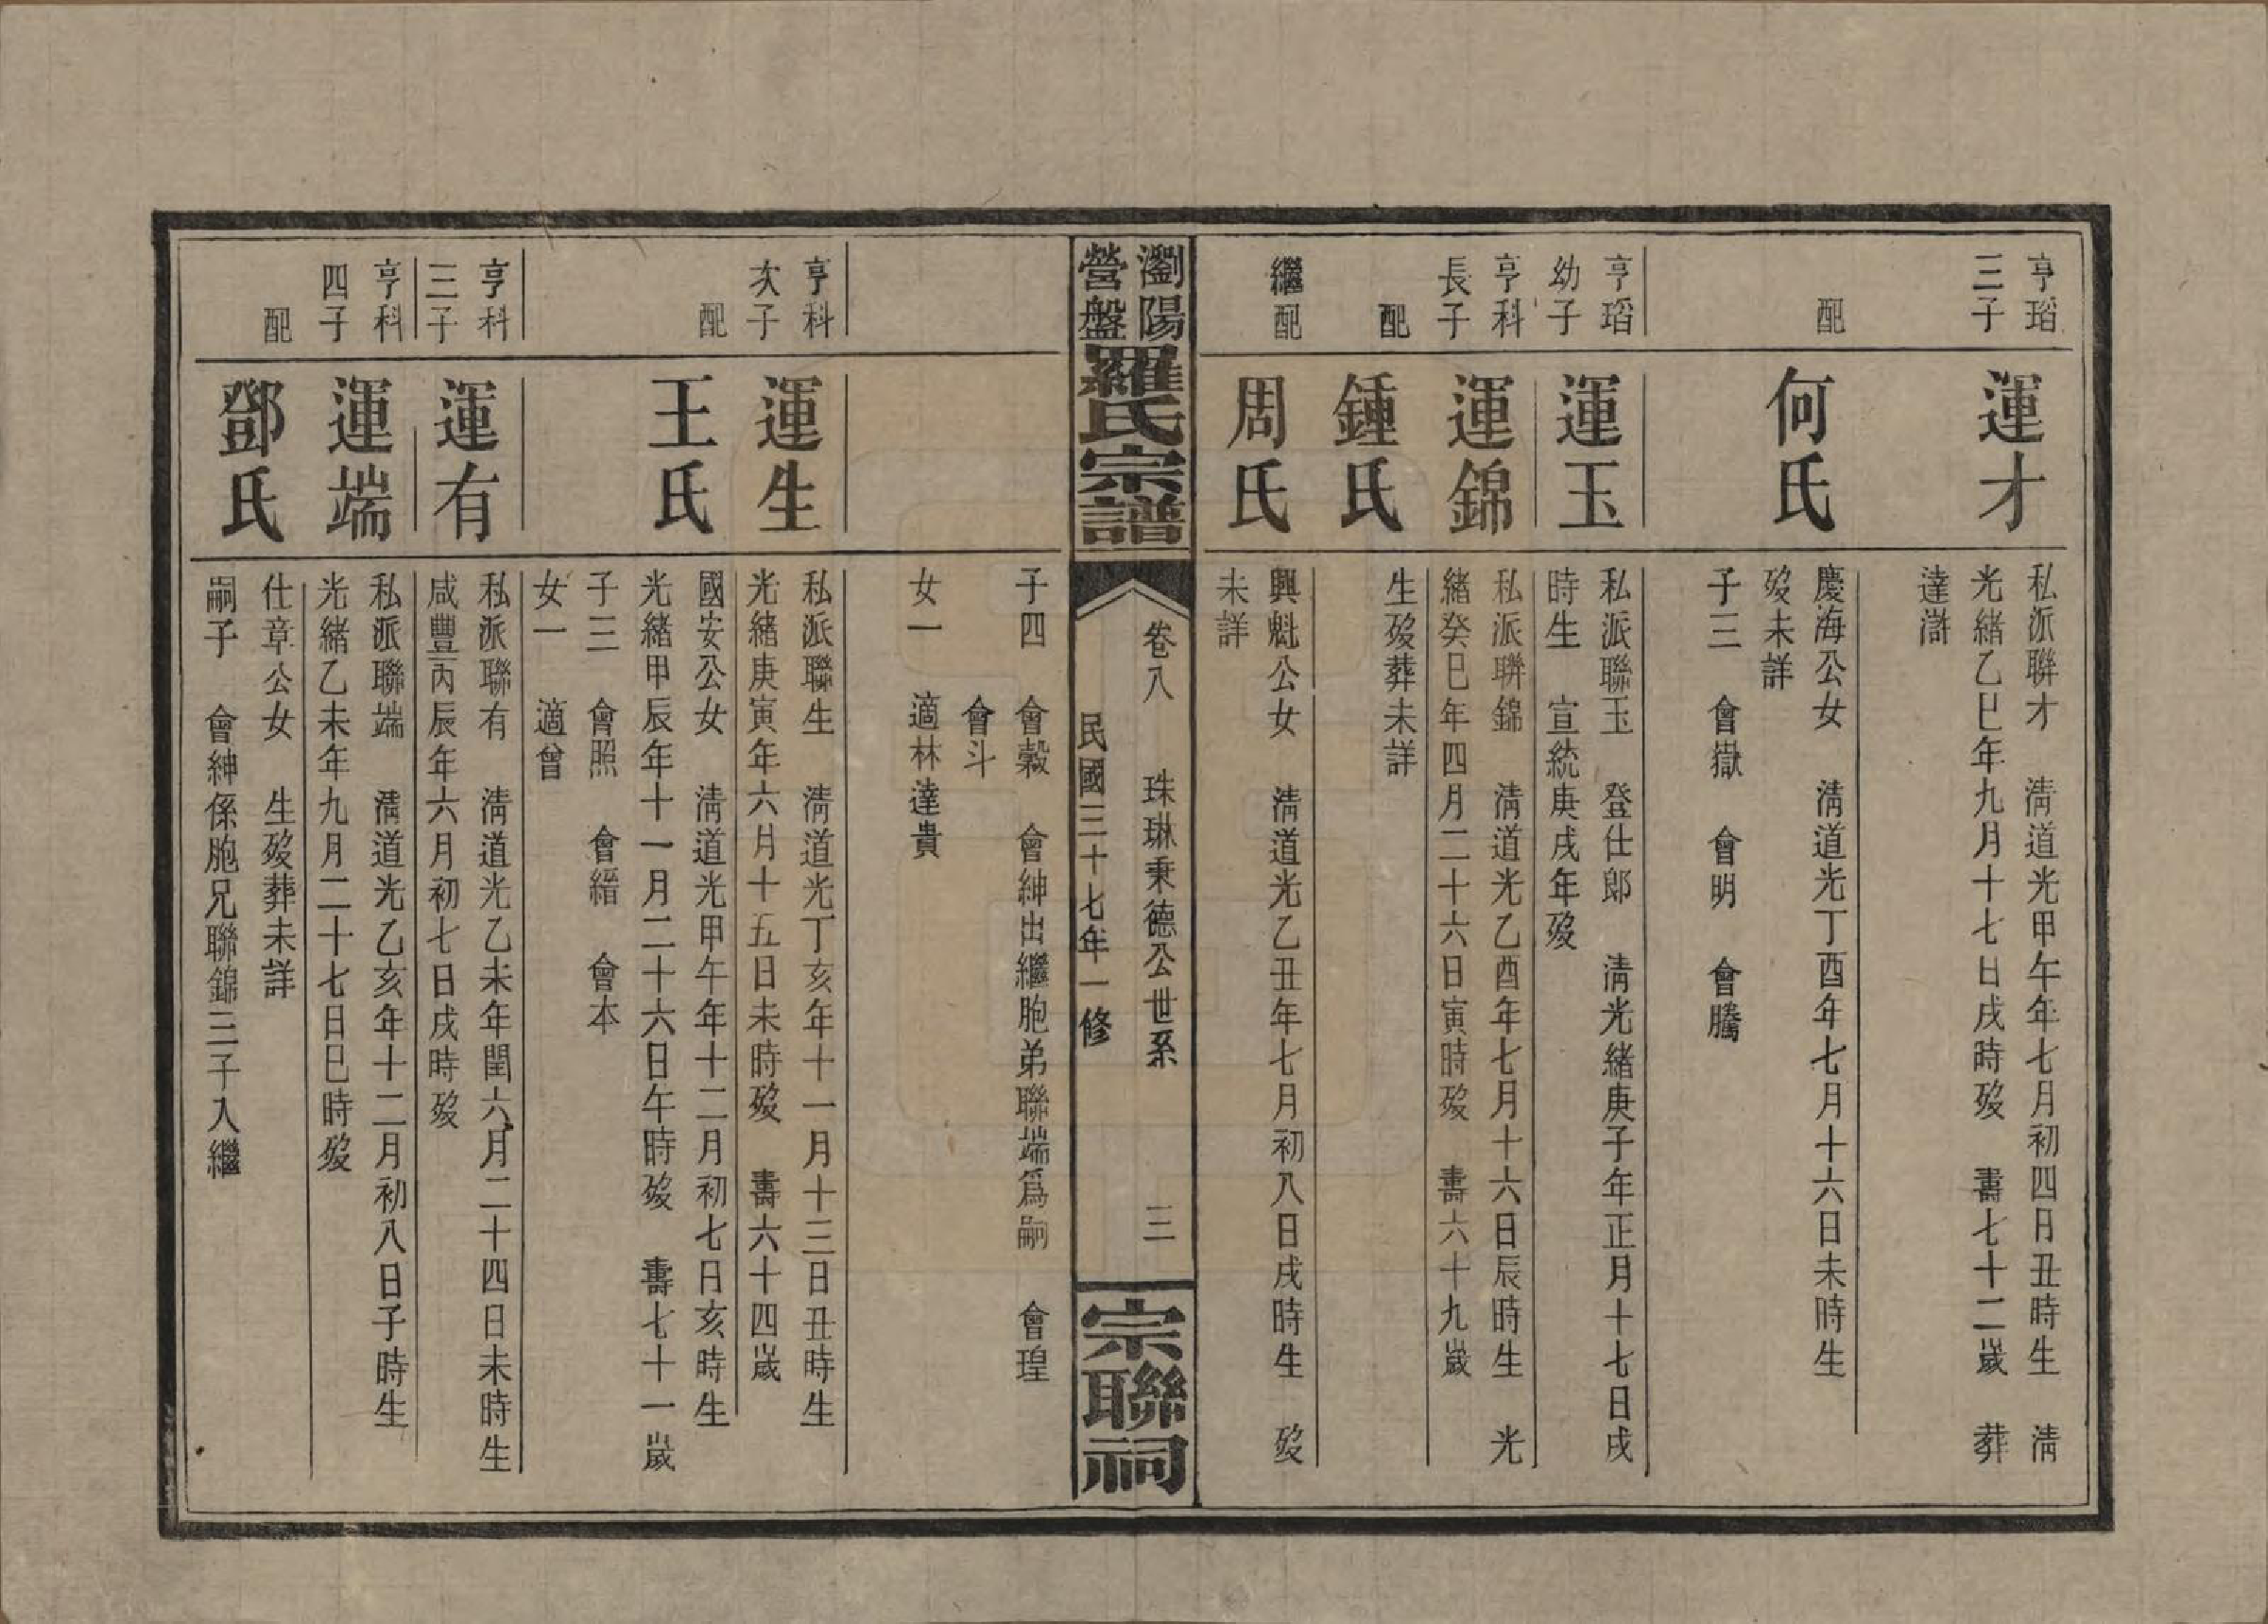 亨瑫
三子
運才
私派聯才　清道光甲午年七月初四日丑時生　清
光緒乙巳年九月十七日戌時歿　壽七十二歲　葬
達滸
配
何氏
慶海公女　清道光丁酉年七月十六日未時生
歿未詳
子三　會嶽　會明　會騰
亨瑫
幼子
運玉
私派聯玉　登仕郎　清光緒庚子年正月十七日戌
時生　宣統庚戌年歿
亨科
長子
運錦
私派聯錦　清道光乙酉年七月十六日辰時生　光
緒癸巳年四月二十六日寅時歿　壽六十九歲
配
鍾氏
生歿葬未詳
繼配
周氏
興魁公女　清道光乙丑年七月初八日戌時生　歿
未詳
瀏陽
營盤
羅氏宗譜
卷八　珠琳秉德公世系　三
民國三十七年一修
宗聯祠
子四　會穀　會紳出繼胞弟聯端爲嗣　會瑝
會斗
女一　適林達貴
亨科
次子
運生
私派聯生　清道光丁亥年十一月十三日丑時生
光緒庚寅年六月十五日未時歿　壽六十四歲
配
王氏
國安公女　清道光甲午年十二月初七日亥時生
光緒甲辰年十一月二十六日午時歿　壽七十一歲
子三　會照　會縉　會本
女一　適曾
亨科
三子
運有
私派聯有　清道光乙未年閏六月二十四日未時生
咸豐丙辰年六月初七日戌時歿
亨科
四子
運端
私派聯端　清道光乙亥年十二月初八日子時生
光緒乙未年九月二十七日巳時歿
配
鄧氏
仕章公女　生歿葬未詳
嗣子　會紳係胞兄聯錦三子入繼